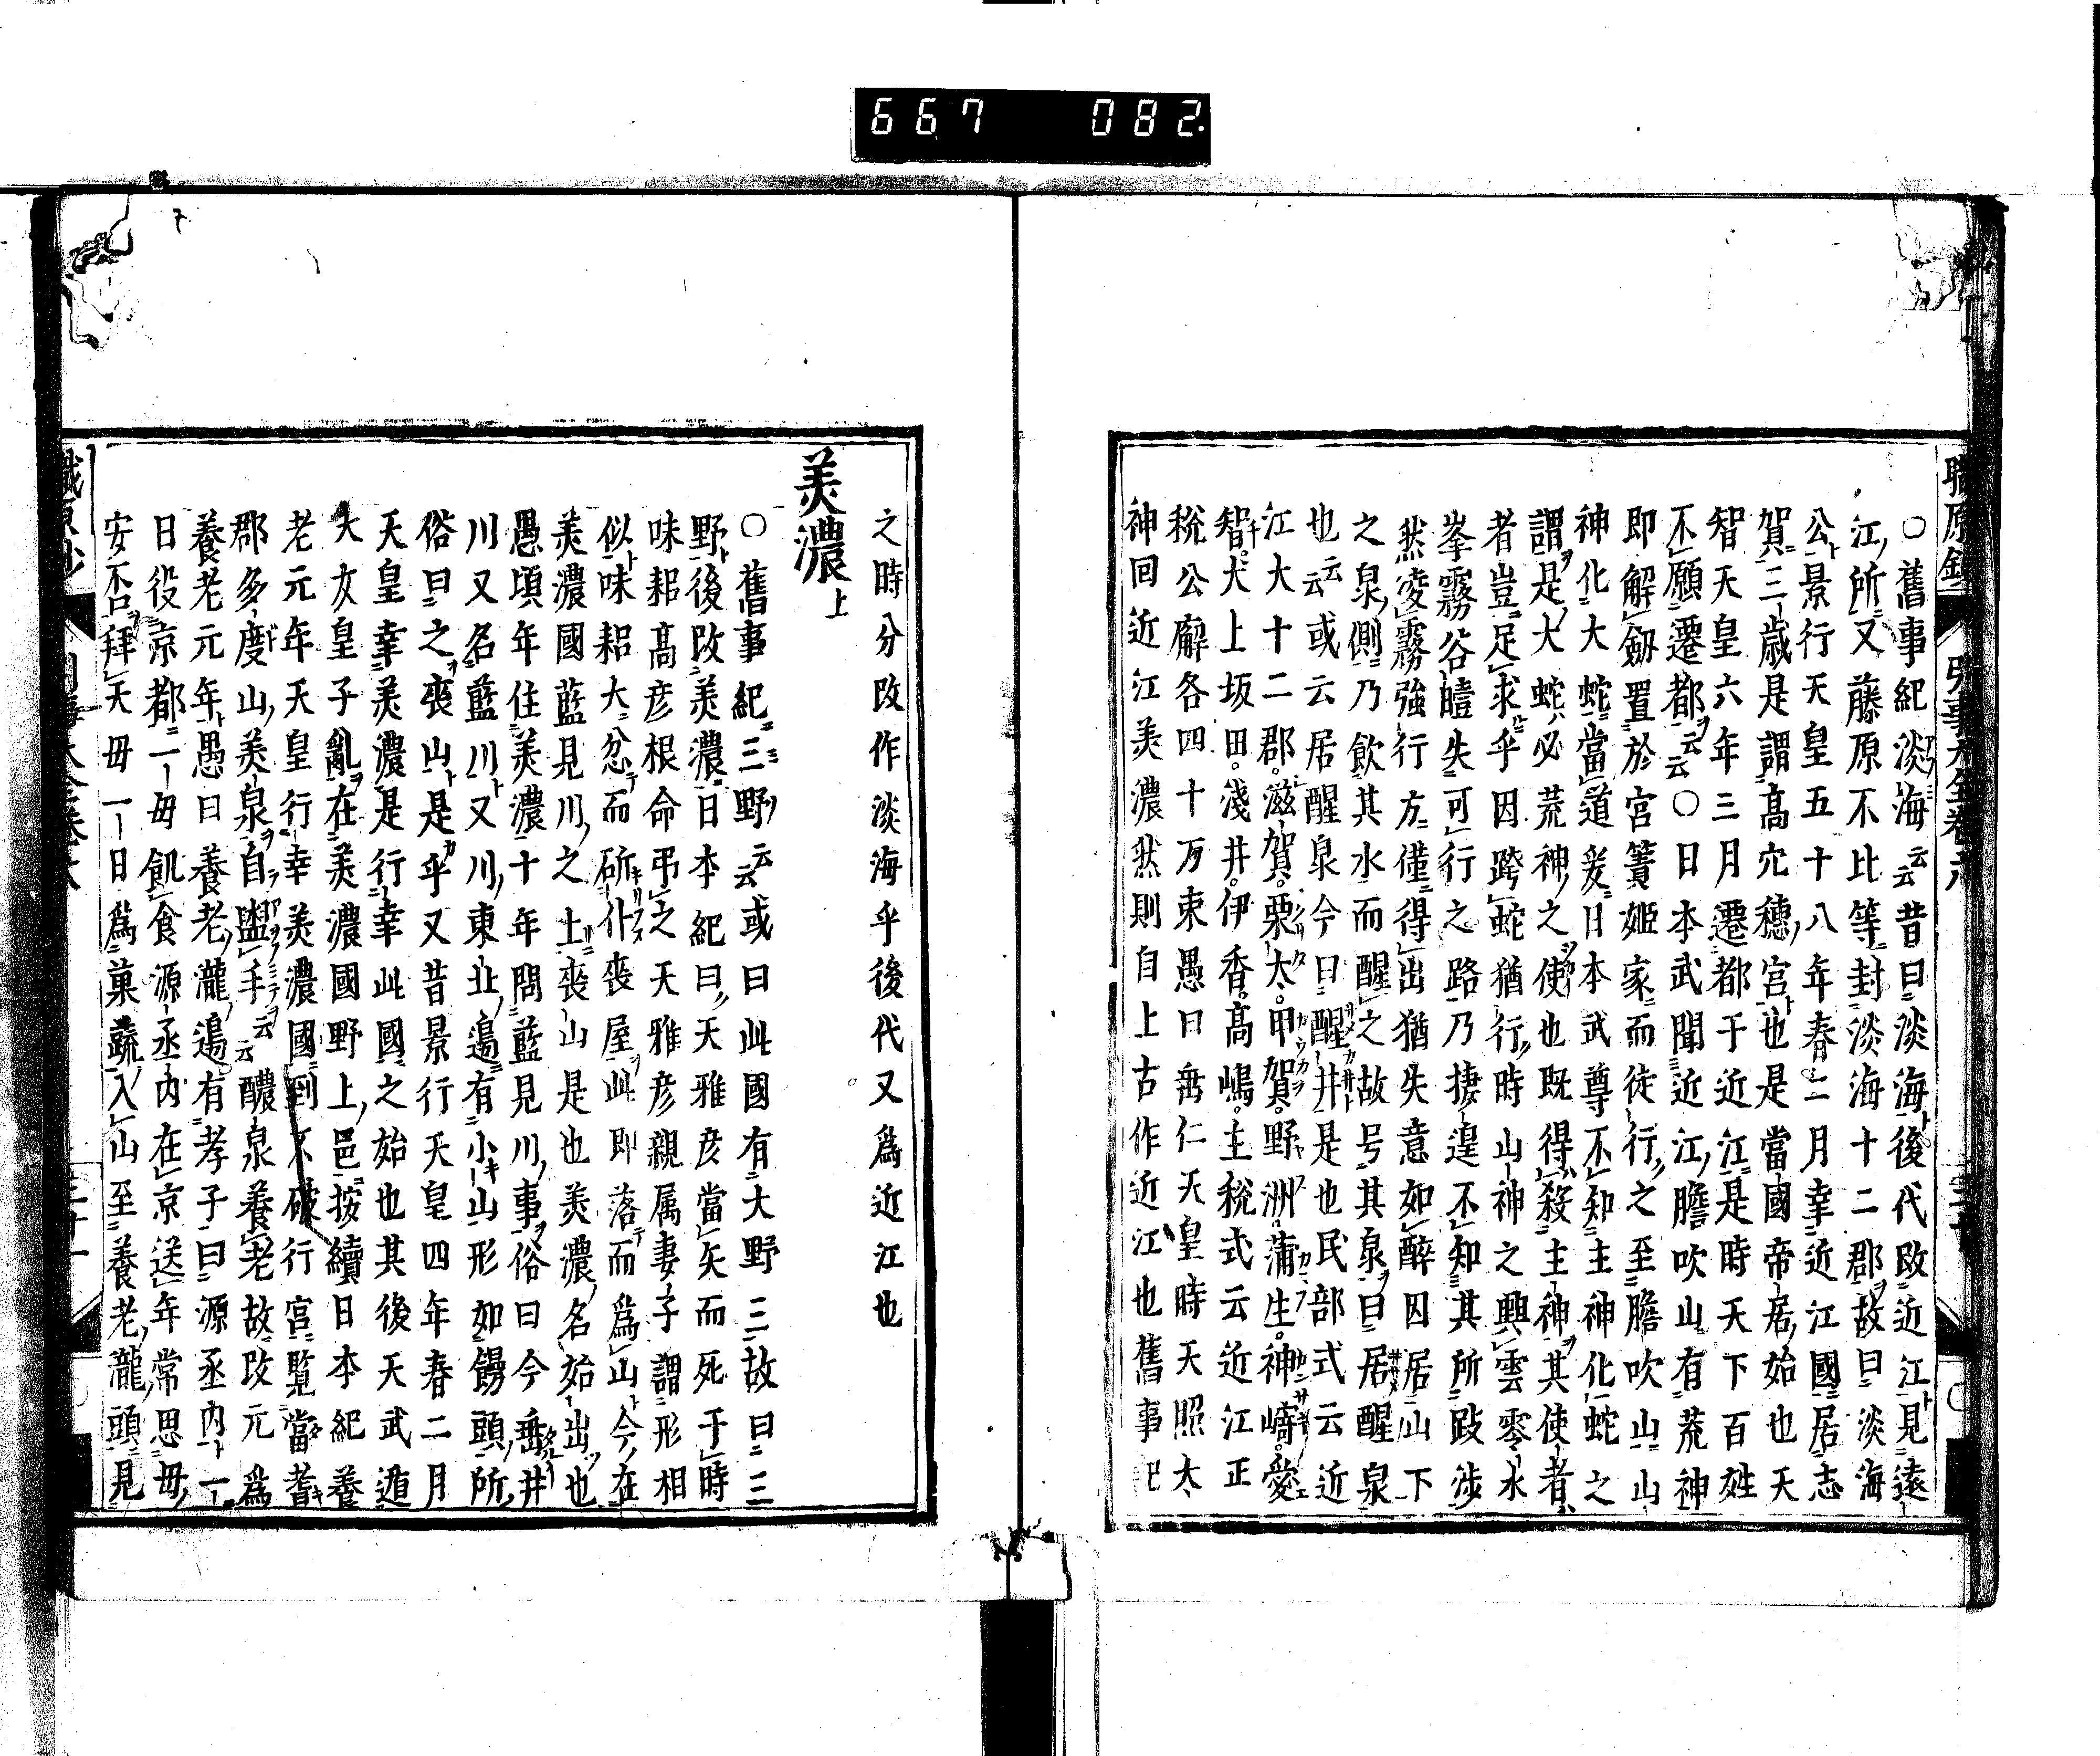 667 082
〇舊事紀淡海云云昔曰淡海後代改近江見遠
江所又藤原不比等封淡海十二郡故曰淡海
公景行天皇五十八年春二月幸近江國居志
賀三歲是謂高穴穗宮也是當國帝居始也天
智天皇六年三月遷都于近江是時天下百姓
不願遷都云云〇日本武聞近江膽吹山有荒神
即解劔置於宮簀姬家而徒行之至膽吹山山
神化大蛇當道爰日本武尊不知主神化蛇之
謂是大蛇必荒神之使也既得殺主神其使者
者豈足求乎因跨蛇猶行時山神之興雲零氷
峯霧谷曀失可行之路乃捿遑不知其所跋涉
然凌霧強行方僅得出猶失意如醉因居山下
之泉側乃飲其水而醒之故号其泉曰居醒泉
也云云或云居醒泉今曰醒井是也民部式云近
江大十二郡滋賀栗太甲賀野洲蒲生神崎愛
智犬上坂田淺井伊香高嶋主稅式云近江正
稅公廨各四十万束愚曰垂仁天皇時天照太
神回近江美濃然則自上古作近江也舊事記
之時分改作淡海乎後代又爲近江也
美濃上
〇舊事紀三野云云或曰此國有大野三故曰三
野後改美濃日本紀曰天雅彦當矢而死于時
味耜高彦根命弔之天雅彦親属妻子謂形相
似味耜大忿而斫仆喪屋此即落而爲山今在
美濃國藍見川之上喪山是也美濃名始出也
愚頃年住美濃十年問藍見川事俗曰今垂井
川又名藍川又川東北邉有小山形如饅頭所
俗曰之喪山是乎又昔景行天皇四年春二月
天皇幸美濃是行幸此國之始也其後天武遁
大友皇子亂在美濃國野上邑按續日本紀養
老元年天皇行幸美濃國到不破行宮覧當耆
郡多度山美泉自盥手云云醴泉養老故改元爲
養老元年愚曰養老瀧邉有孝子曰源丞内一
日役京都一母飢食源丞内在京送年常思母
安否拜天母一日爲菓蔬入山至養老瀧頭見